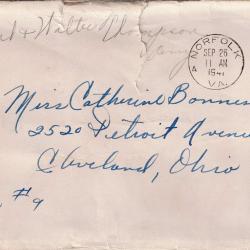 & Walter Thompson
NORFOLK
SEP 26
11 AM
1941
VA.
Miss Catherine Bonnes
2520 Detroit Avenue
Cleveland, Ohio
#9